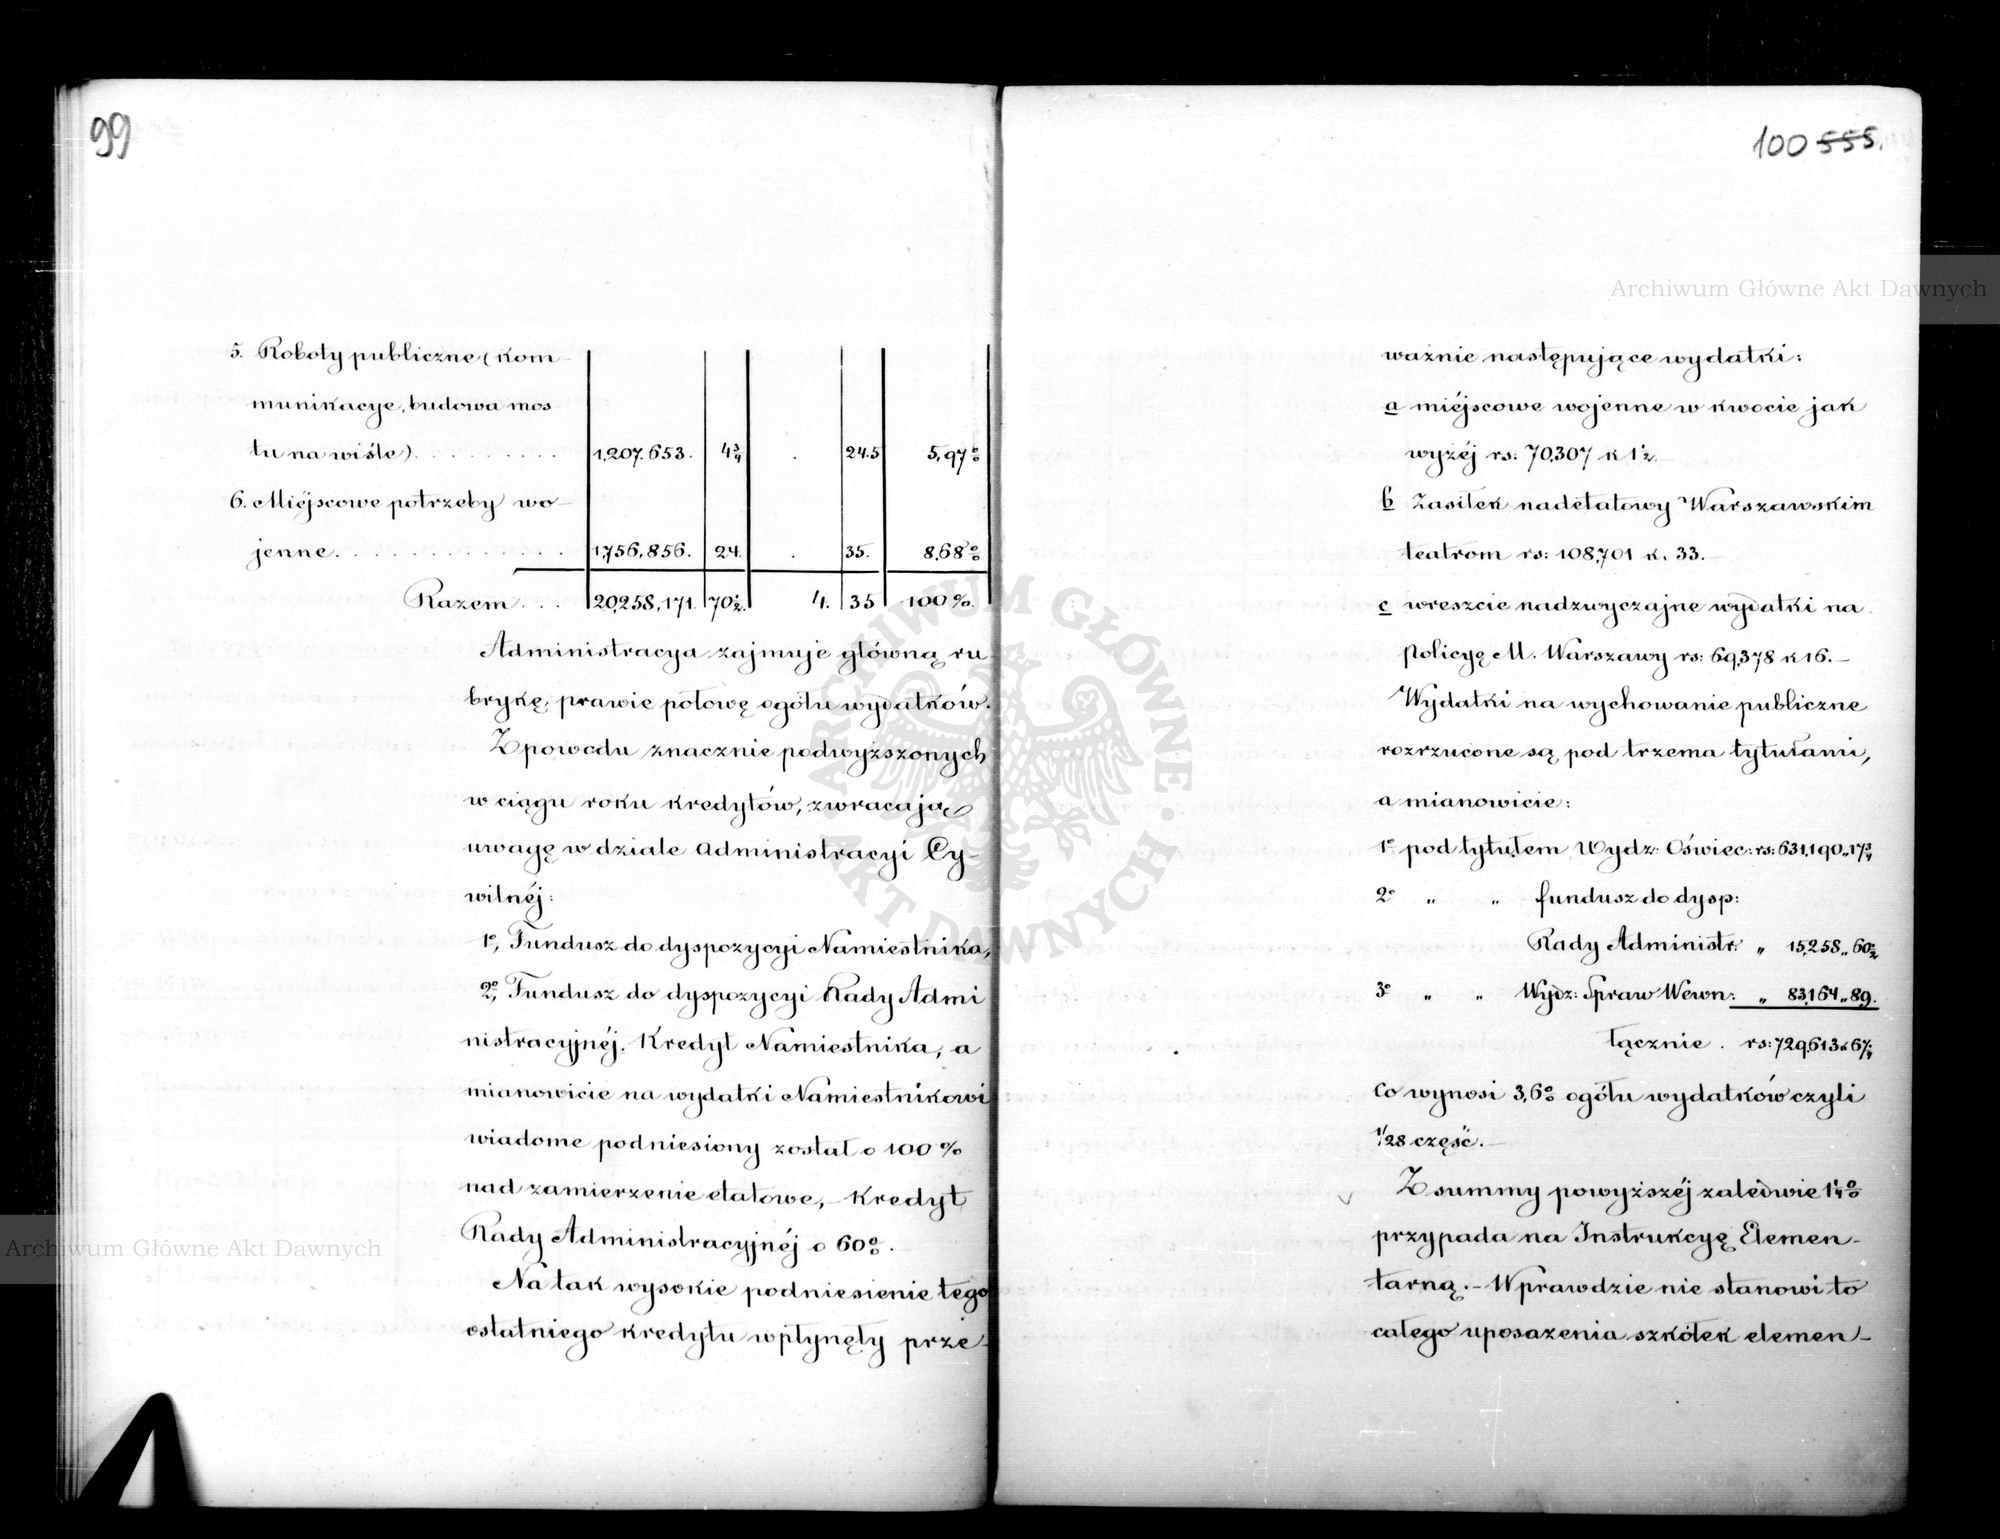 99
5. Roboty publiczne (kom-
munikacye, budowa mos
tu na wiśle) . . . . . . . . . . 1,207.653. 4¾ . 24.5 5,97%
6. Miéjscowe potrzeby wo-
jenne . . . . . . . . . . . 1,756,856. 24. . 35. 8,68%
Razem . . . 20,258,171. 70½. 4. 35 100%.
Administracya zajmuje główną ru-
brykę, prawie połowę ogółu wydatków.
Z powodu znacznie podwyższonych
w ciągu roku kredytów, zwracają
uwagę w dziale administracyi Cy-
wilnéj:
1º, Fundusz do dyspozycyi Namiestnika,
2º, Fundusz do dyspozycyi Rady Admi
nistracyjnéj. Kredyt Namiestnika, a
mianowicie na wydatki Namiestnikowi
wiadome podniesiony został o 100%
nad zamierzenie etatowe, – Kredyt
Rady Administracyjnéj o 60%.
Na tak wysokie podniesienie tego
ostatniego kredytu wpłynęły prze-
100 555.
ważnie następujące wydatki:
a miéjscowe wojenne w kwocie jak
wyżéj rs: 70,307 k 1½.–
b Zasiłek nadetatowy Warszawskim
teatrom rs: 108,701 k. 33.–
c wreszcie nadzwyczajne wydatki na
Policyę M. Warszawy rs: 69,378 k 16.–
Wydatki na wychowanie publiczne
rozrzucone są pod trzema tytułami,
a mianowicie:
1º pod tytułem Wydz: Oświec: rs: 631,190„17¾
2º „ „ fundusz do dysp:
Rady Administr: „ 15,258„60½
3º „ „ Wydz: Spraw Wewn: „ 83,164„89.
łącznie . rs: 729,613 k 67¼
co wynosi 3,6% ogółu wydatków czyli
1/28 część.–
Z summy powyższéj zaledwie 1¼%
przypada na Instrukcyę Elemen-
tarną.– Wprawdzie nie stanowi to
całego uposażenia szkółek elemen-
Archiwum Główne Akt Dawnych
Archiwum Główne Akt Dawnych
ARCHIWUM GŁÓWNE · AKT DAWNYCH ·